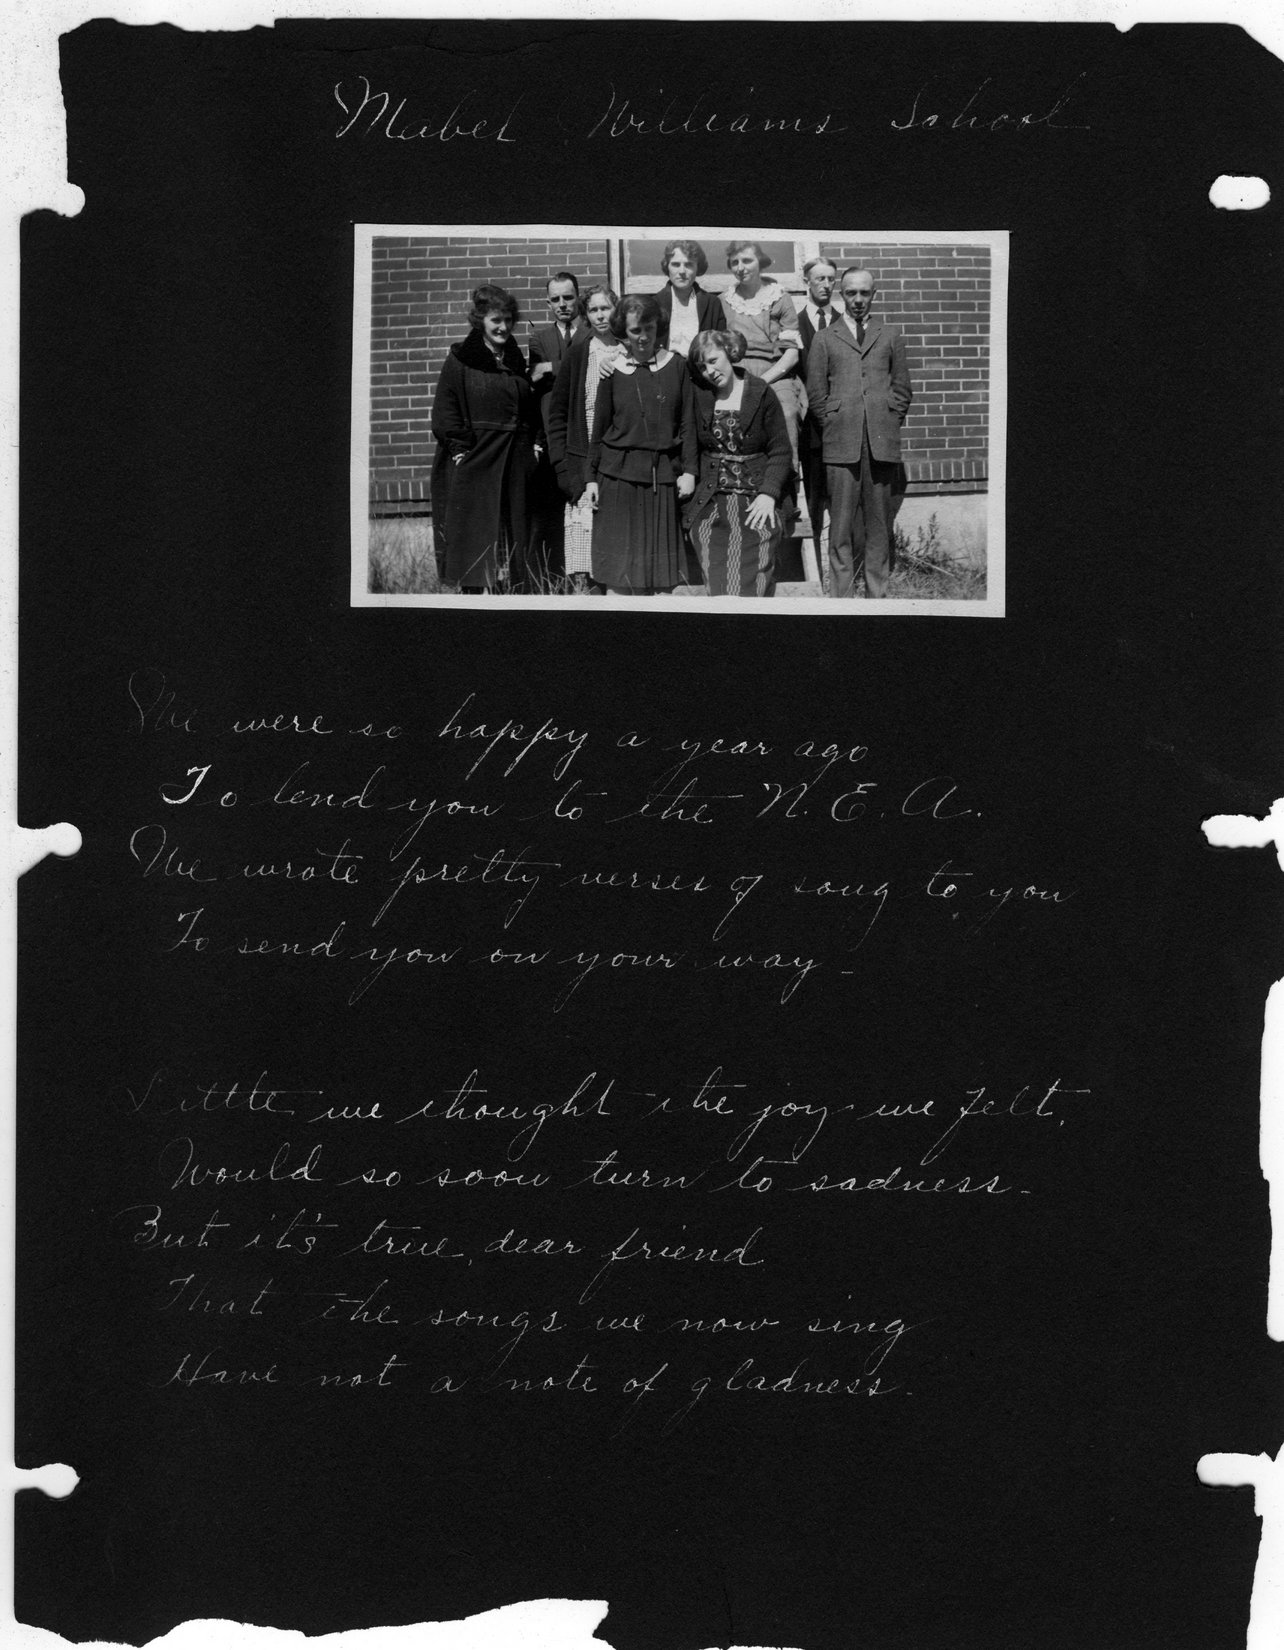 Mabel Williams School
We were so happy a year ago
To lend you to the N. E. A.
We wrote pretty verses of song to you
To send you on your way -
Little we thought the joy we felt,
Would so soon turn to sadness -
But it's true, dear friend
That the songs we now sing
Have not a note of gladness.